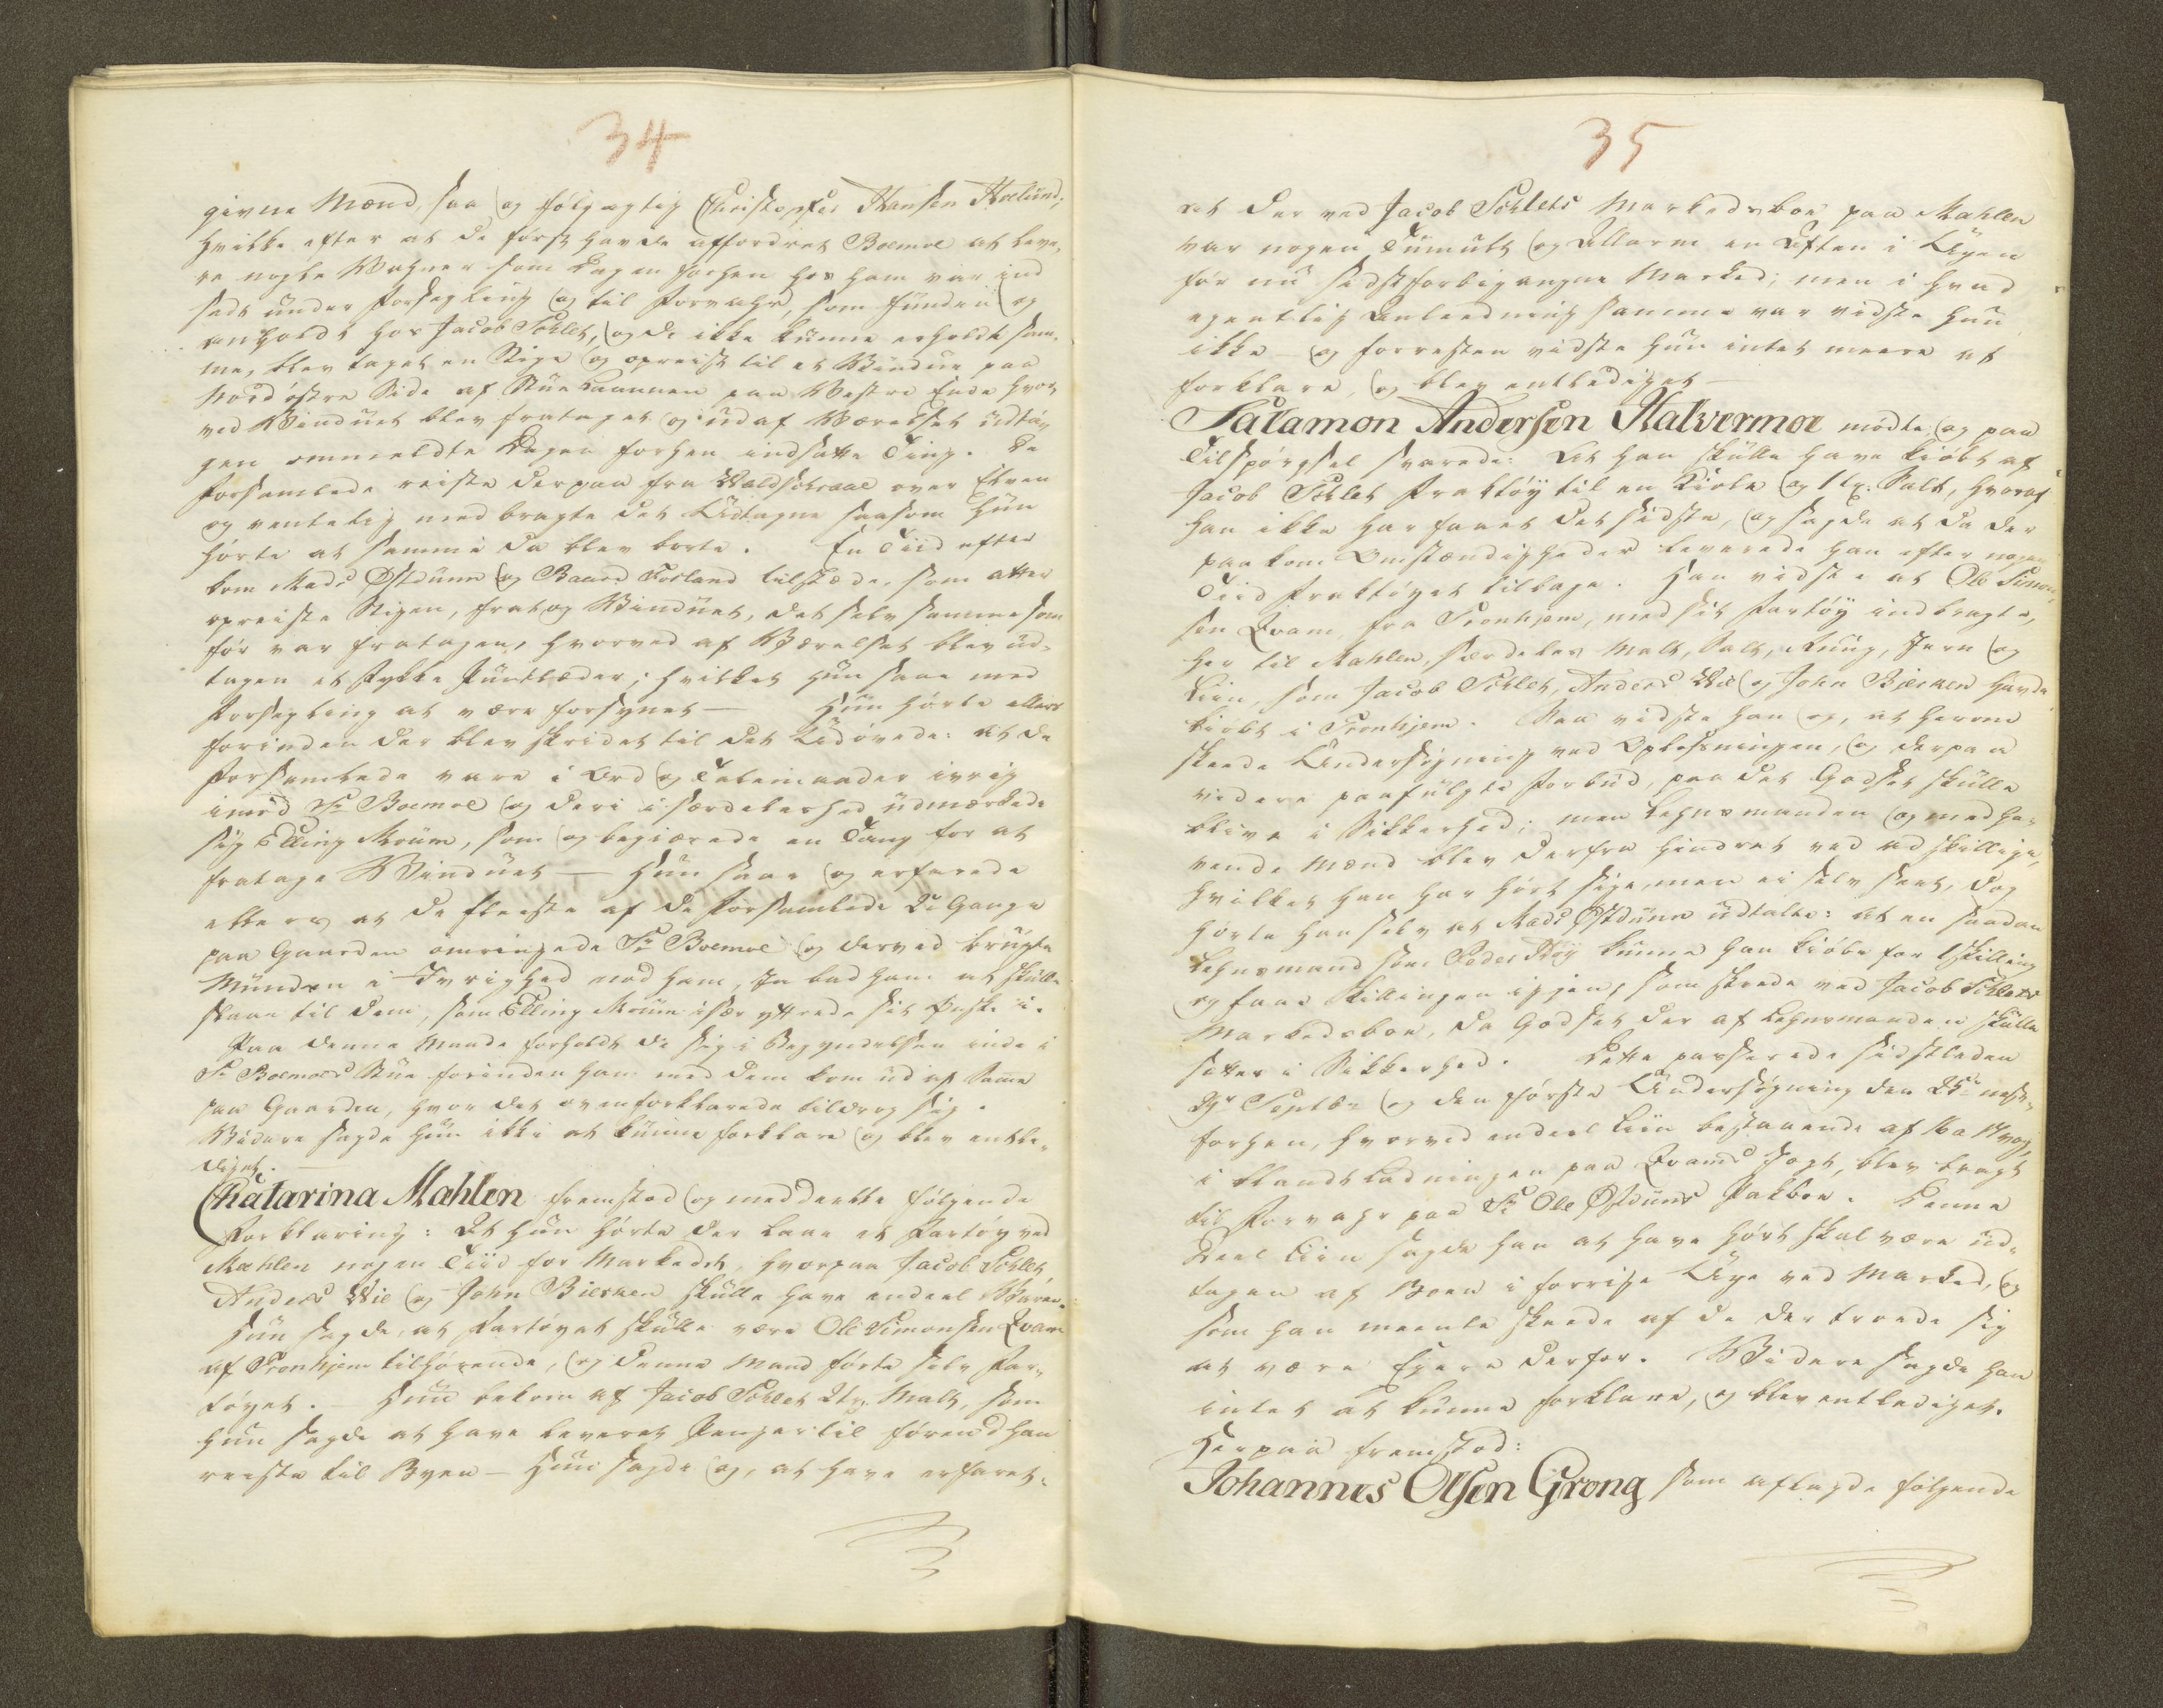 34
givne Mænd, saa og følgagtig Christopher Hansen Hoelund;
hvilke efter at de først havde affordret Boemoe at leve-
re nogle Wahrer som Dagen forhen hos ham var ind
sadt under Forsegling og til Forvahr, som funden og
anholdt hos Jacob Sohlet, og de ikke kunne erholde sam-
me, blev taget en Stige og opreist til et Windue paa
Nordøstre Side af Stue Laannen paa Westre Ende hvor
ved Winduet blev frataget og ud af Wærelset udta-
gen ommeldte Dagen forhen indsatte Ting. De
forsamlede reiste derpaa fra Waldsohraal over Elven
og ventelig medbragte det Udtagne saasom Hun
hørte at samme da blev borte. En Tiid efter
kom Mads Østdunn og Baard Fosland tilstæde, som atter
opreiste Stigen, fratog Winduet, det selv samme som
før var fratagen, hvorved af Wærelset blev ud-
tagen et stykke Puntlæder; hvilket Hun saae med
Forsegling at være forsynet — Hun hørte ellers
forinden der blev skridet til det Udøvede: at de
forsamlede vare i Ord og Talemaader ivrig
imod Sr Boemoe og deri i særdeleshed udmærkede
sig Elling Moum, som og begiærede en Tang for at
fratage Winduet — Hun saae og erfarede
ellers at de fleeste af de forsamlede 2de Gange
paa Gaarden omringede Sr Boemoe og derved brugte
Munden i Ivrighed mod ham, Ja bad ham at skulle
slaae til dem, som Elling Moum især yttrede sit Ønske i.
Paa denne Maade forholdt de sig i Begyndelsen inde i
Sr Boemoes Stue forinden ham med dem kom ud af Samme
paa Gaarden, hvor det ovenforklarede tildrog sig.
Widere sagde Hun ikke at kunne forklare og blev entle-
diget.
Chatarina Mahlen fremstod og meddeelte følgende
Forklaring: At Hun hørte der laae et Fartøy ved
Mahlen nogen Tiid før Markedet, hvorpaa Jacob Sohlet,
Anders Wie og John Bierken skulle have endeel Warer.
Hun sagde, at Fartøyet skulle være Ole Simonsen Qvam
af Tronhjem tilhørende, og denne Mand førte selv Far-
tøyet. — Hun bekom af Jacob Sohlet 2 tr. Malt, som
Hun sagde at have leveret Penger til førend han
reiste til Byen — Hun sagde og, at have erfaret:
35
at der ved Jacob Sohlets Markedsboe paa Mahlen
var nogen Tumult og Allarm en Aften i Ugen
før nu sidstforbigangne Marked; men i hvad
egentlig Anleedning samme var vidste Hun
ikke — og forresten vidste Hun intet meere at
forklare, og blev entlediget —
Salamon Andersen Halvermoe mødte og paa
Tilspørgsel svarede: At han skulle have kiøbt af
Jacob Sohlet Fraktøy til en Kiole og 1 tr. Salt, hvoraf
han ikke har faaet det sidste, og sagde at da der
paakom Omstændigheder leverede han efter nogen
Tiid Fraktøyet tilbage. Han vidste at Ole Simon-
sen Qvam fra Tronhjem, med sit Fartøy indbragte,
her til Mahlen, særdeles Malt, Salt, Ruug, Jern og
Liin, som Jacob Sohlet, Anders Wie og John Bierken havde
kiøbt i Tronhjem. Saa vidste han og, at herom
skeede Undersøgning ved Oplosningen, og derpaa
videre paafulgte Forbud, paa det Godset skulle
blive i Sikkerhed; men Lehnsmanden og medha-
vende Mænd blev derfra hindret ved adskillige,
hvilket han har hørt sige, men ei selv seet, dog
hørte han selv at Mads Østdunn udtalte: At en saadan
Lehnsmand som Peder Høy kunne han kiøbe for 1 skilling
og faae Skillingen igjen, som skeede ved Jacob Sohlets
Markedsboe, da Godset der af Lehnsmanden skulle
sættes i Sikkerhed. Dette passerede sidstleden
29de Septbr og den første Undersøgning den 25de næst
forhen, hvorved endeel Liin bestaaende af 16 a 17 vog,
i blandt Ladningen paa Qvams Jagt, blev bragt
til Forvahr paa Sr Ole Østduns Pakboe. Denne
Deel Liin sagde han at have hørt skal være ud-
tagen af Boen i forrige Uge ved Marked, og
som han meente skeede af de der troede sig
at være Eyere derfor. Widere sagde han
intet at kunne forklare, og blev entlediget.
Herpaa fremstod:
Johannes Olsen Grong som aflagde følgende